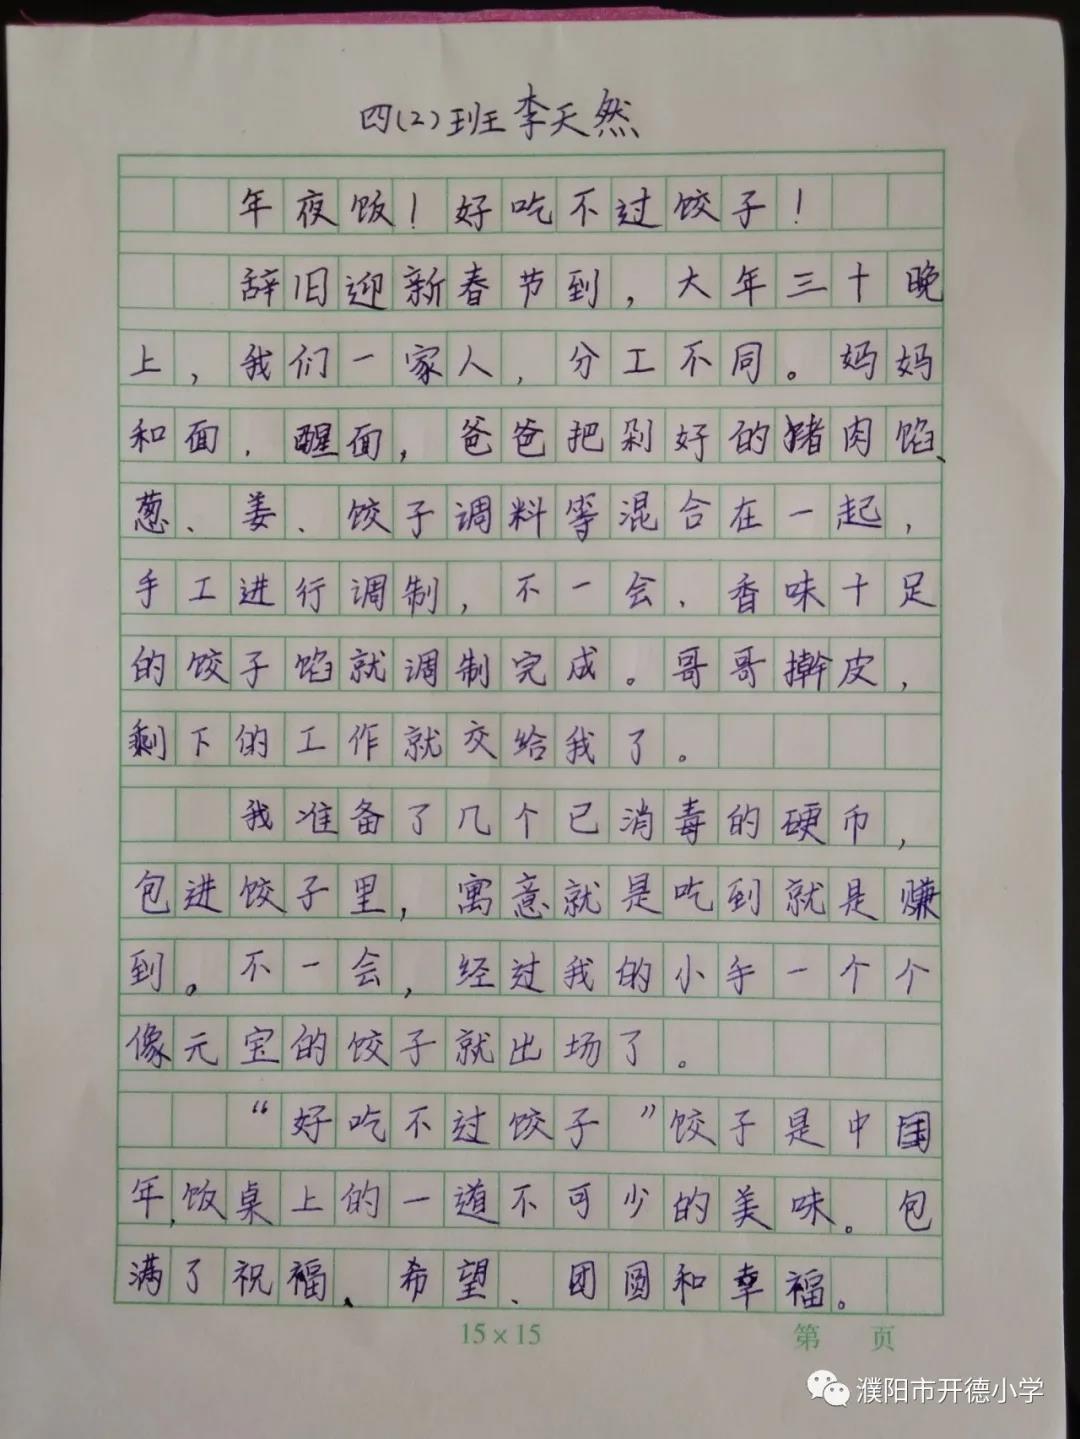 四(2)班李天然
年夜饭！好吃不过饺子！
辞旧迎新春节到，大年三十晚
上，我们一家人，分工不同。妈妈
和面，醒面，爸爸把剁好的猪肉馅、
葱、姜、饺子调料等混合在一起，
手工进行调制，不一会，香味十足
的饺子馅就调制完成。哥哥擀皮，
剩下的工作就交给我了。
我准备了几个已消毒的硬币，
包进饺子里，寓意就是吃到就是赚
到。不一会，经过我的小手一个个
像元宝的饺子就出场了。
“好吃不过饺子”饺子是中国
年，饭桌上的一道不可少的美味。包
满了祝福、希望、团圆和幸福。
15×15
第 页
濮阳市开德小学